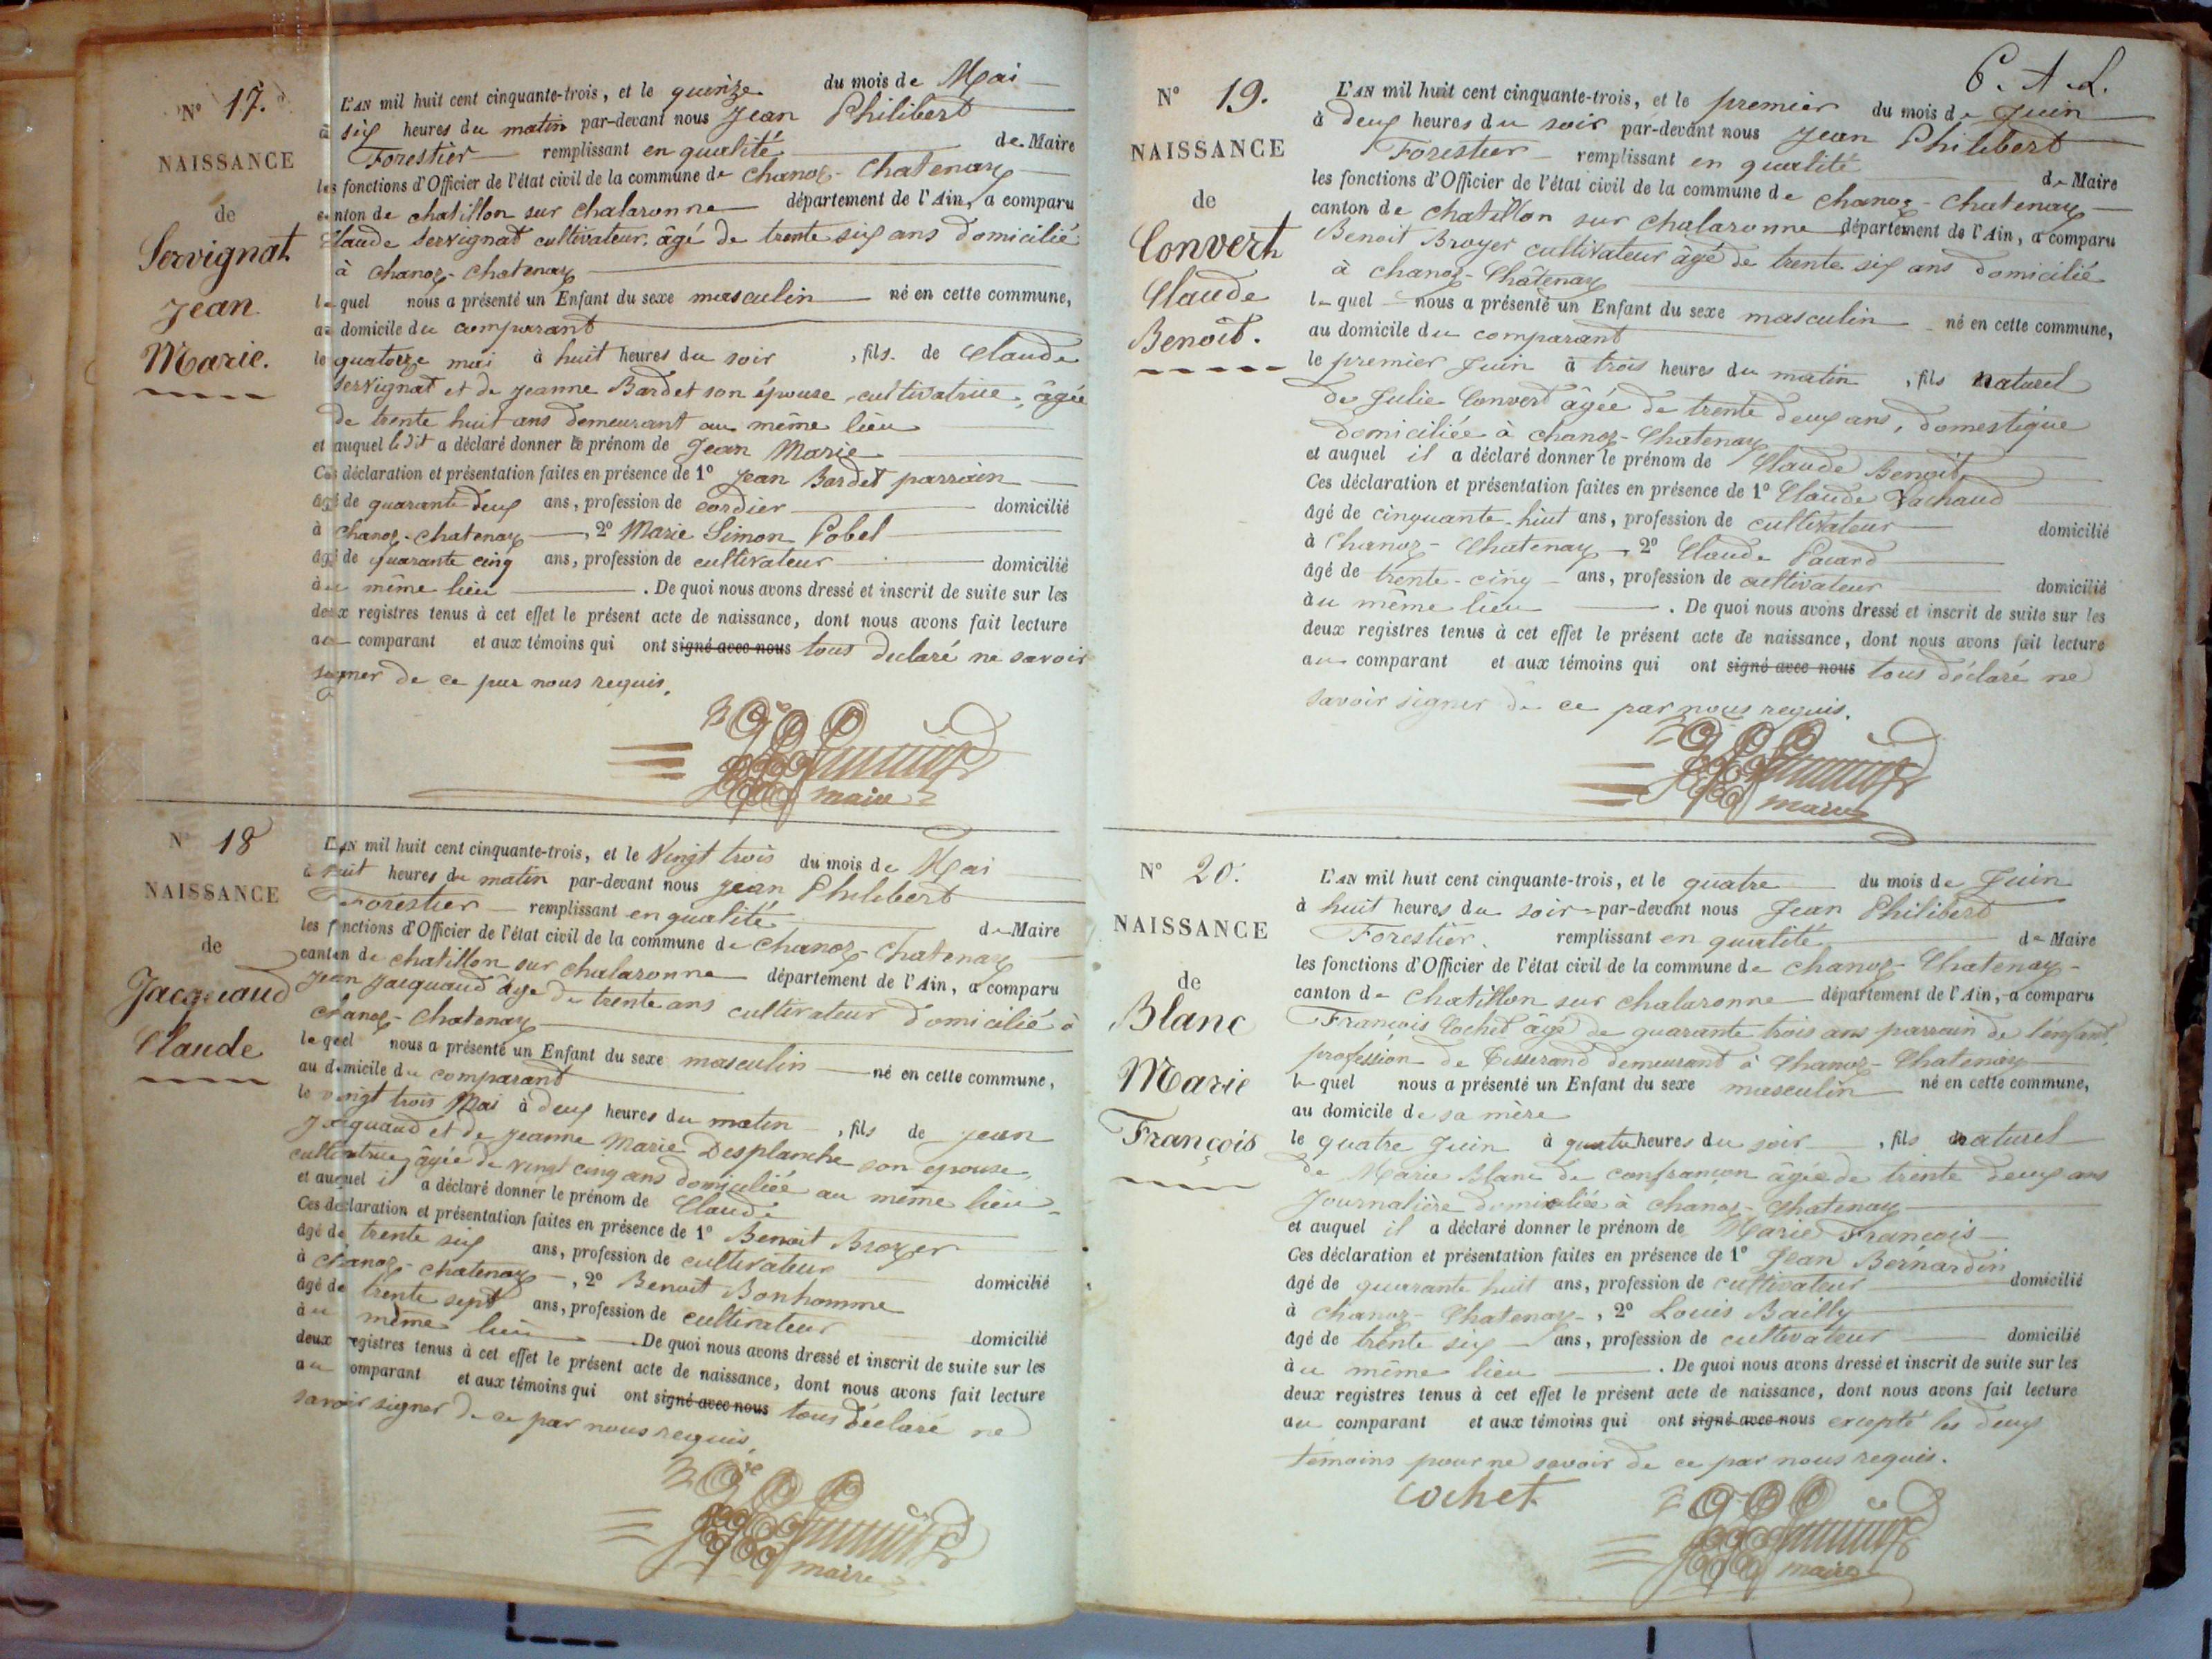 N° 17.
NAISSANCE
de
Servignat
Jean
Marie.
L'AN mil huit cent cinquante-trois, et le quinze du mois de Mai
à six heures du matin par-devant nous Jean Philibert
Forestier remplissant en qualité de Maire
les fonctions d'Officier de l'état civil de la commune de Chanoz-Chatenay
canton de chatillon sur chalaronne département de l'Ain, a comparu
Claude Servignat cultivateur, âgé de trente six ans domicilié
à Chanoz-Chatenay
lequel nous a présenté un Enfant du sexe masculin né en cette commune,
au domicile du comparant
le quatorze mai à huit heures du soir, fils de Claude
Servignat et de Jeanne Bardet son épouse, cultivatrice, âgée
de trente huit ans demeurant au même lieu
et auquel le dit a déclaré donner le prénom de Jean Marie
Ces déclaration et présentation faites en présence de 1° Jean Bardet parrain
âgé de quarante deux ans, profession de cordier domicilié
à Chanoz-Chatenay, 2° Marie Simon Pobel
âgé de quarante cinq ans, profession de cultivateur domicilié
au même lieu. De quoi nous avons dressé et inscrit de suite sur les
deux registres tenus à cet effet le présent acte de naissance, dont nous avons fait lecture
au comparant et aux témoins qui ont signé avec nous tous declaré ne savoir
signer de ce par nous requis.
maire
N° 18
NAISSANCE
de
Jacquaud
Claude
L'AN mil huit cent cinquante-trois, et le Vingt trois du mois de Mai
à huit heures du matin par-devant nous Jean Philibert
Forestier remplissant en qualité de Maire
les fonctions d'Officier de l'état civil de la commune de Chanoz-Chatenay
canton de chatillon sur chalaronne département de l'Ain, a comparu
Jean Jacquaud âgé de trente ans cultivateur domicilié à
Chanoz-Chatenay
lequel nous a présenté un Enfant du sexe masculin né en cette commune,
au domicile du comparant
le vingt trois Mai à deux heures du matin, fils de Jean
Jacquaud et de Jeanne Marie Desplanche son épouse,
cultivatrice, âgée de vingt cinq ans domiciliée au même lieu
et auquel il a déclaré donner le prénom de Claude
Ces déclaration et présentation faites en présence de 1° Benoit Broyer
âgé de trente six ans, profession de cultivateur domicilié
à Chanoz-chatenay, 2° Benoit Bonhomme
âgé de trente sept ans, profession de cultivateur domicilié
au même lieu De quoi nous avons dressé et inscrit de suite sur les
deux registres tenus à cet effet le présent acte de naissance, dont nous avons fait lecture
au comparant et aux témoins qui ont signé avec nous tous déclaré ne
savoir signer de ce par nous requis.
maire
N° 19.
NAISSANCE
de
Convert
Claude
Benoit.
L'AN mil huit cent cinquante-trois, et le premier du mois de Juin
à deux heures du soir par-devant nous Jean Philibert
Forestier remplissant en qualité de Maire
les fonctions d'Officier de l'état civil de la commune de Chanoz-Chatenay
canton de Chatillon sur Chalaronne département de l'Ain, a comparu
Benoit Broyer cultivateur âgé de trente six ans domicilié
à Chanoz-Châtenay
lequel nous a présenté un Enfant du sexe masculin né en cette commune,
au domicile du comparant
le premier Juin à trois heures du matin, fils naturel
de Julie Convert âgée de trente deux ans, domestique
domiciliée à Chanoz-Chatenay
et auquel il a déclaré donner le prénom de Claude Benoit
Ces déclaration et présentation faites en présence de 1° Claude Vachaud
âgé de cinquante-huit ans, profession de cultivateur domicilié
à Chanoz-Chatenay, 2° Claude Pauard
âgé de trente-cinq ans, profession de cultivateur domicilié
au même lieu. De quoi nous avons dressé et inscrit de suite sur les
deux registres tenus à cet effet le présent acte de naissance, dont nous avons fait lecture
au comparant et aux témoins qui ont signé avec nous tous déclaré ne
savoir signer de ce par nous requis.
maire
N° 20.
NAISSANCE
de
Blanc
Marie
François
L'AN mil huit cent cinquante-trois, et le quatre du mois de Juin
à huit heures du soir par-devant nous Jean Philibert
Forestier. remplissant en qualité de Maire
les fonctions d'Officier de l'état civil de la commune de Chanoz-Chatenay
canton de Chatillon sur Chalaronne département de l'Ain, a comparu
François Cochet âgé de quarante trois ans parrain de l'enfant,
profession de Tisserand demeurant à Chanoz-Chatenay
lequel nous a présenté un Enfant du sexe masculin né en cette commune,
au domicile de sa mère
le quatre Juin à quatre heures du soir, fils naturel
de Marie Blanc de confrançon âgée de trente deux ans
Journalière domiciliée à Chanoz-Chatenay
et auquel il a déclaré donner le prénom de Marie François
Ces déclaration et présentation faites en présence de 1° Jean Bernardin
âgé de quarante huit ans, profession de cultivateur domicilié
à Chanoz-Chatenay, 2° Louis Bailly
âgé de trente six ans, profession de cultivateur domicilié
au même lieu. De quoi nous avons dressé et inscrit de suite sur les
deux registres tenus à cet effet le présent acte de naissance, dont nous avons fait lecture
au comparant et aux témoins qui ont signé avec nous excepté les deux
témoins pour ne savoir de ce par nous requis.
Cochet
maire